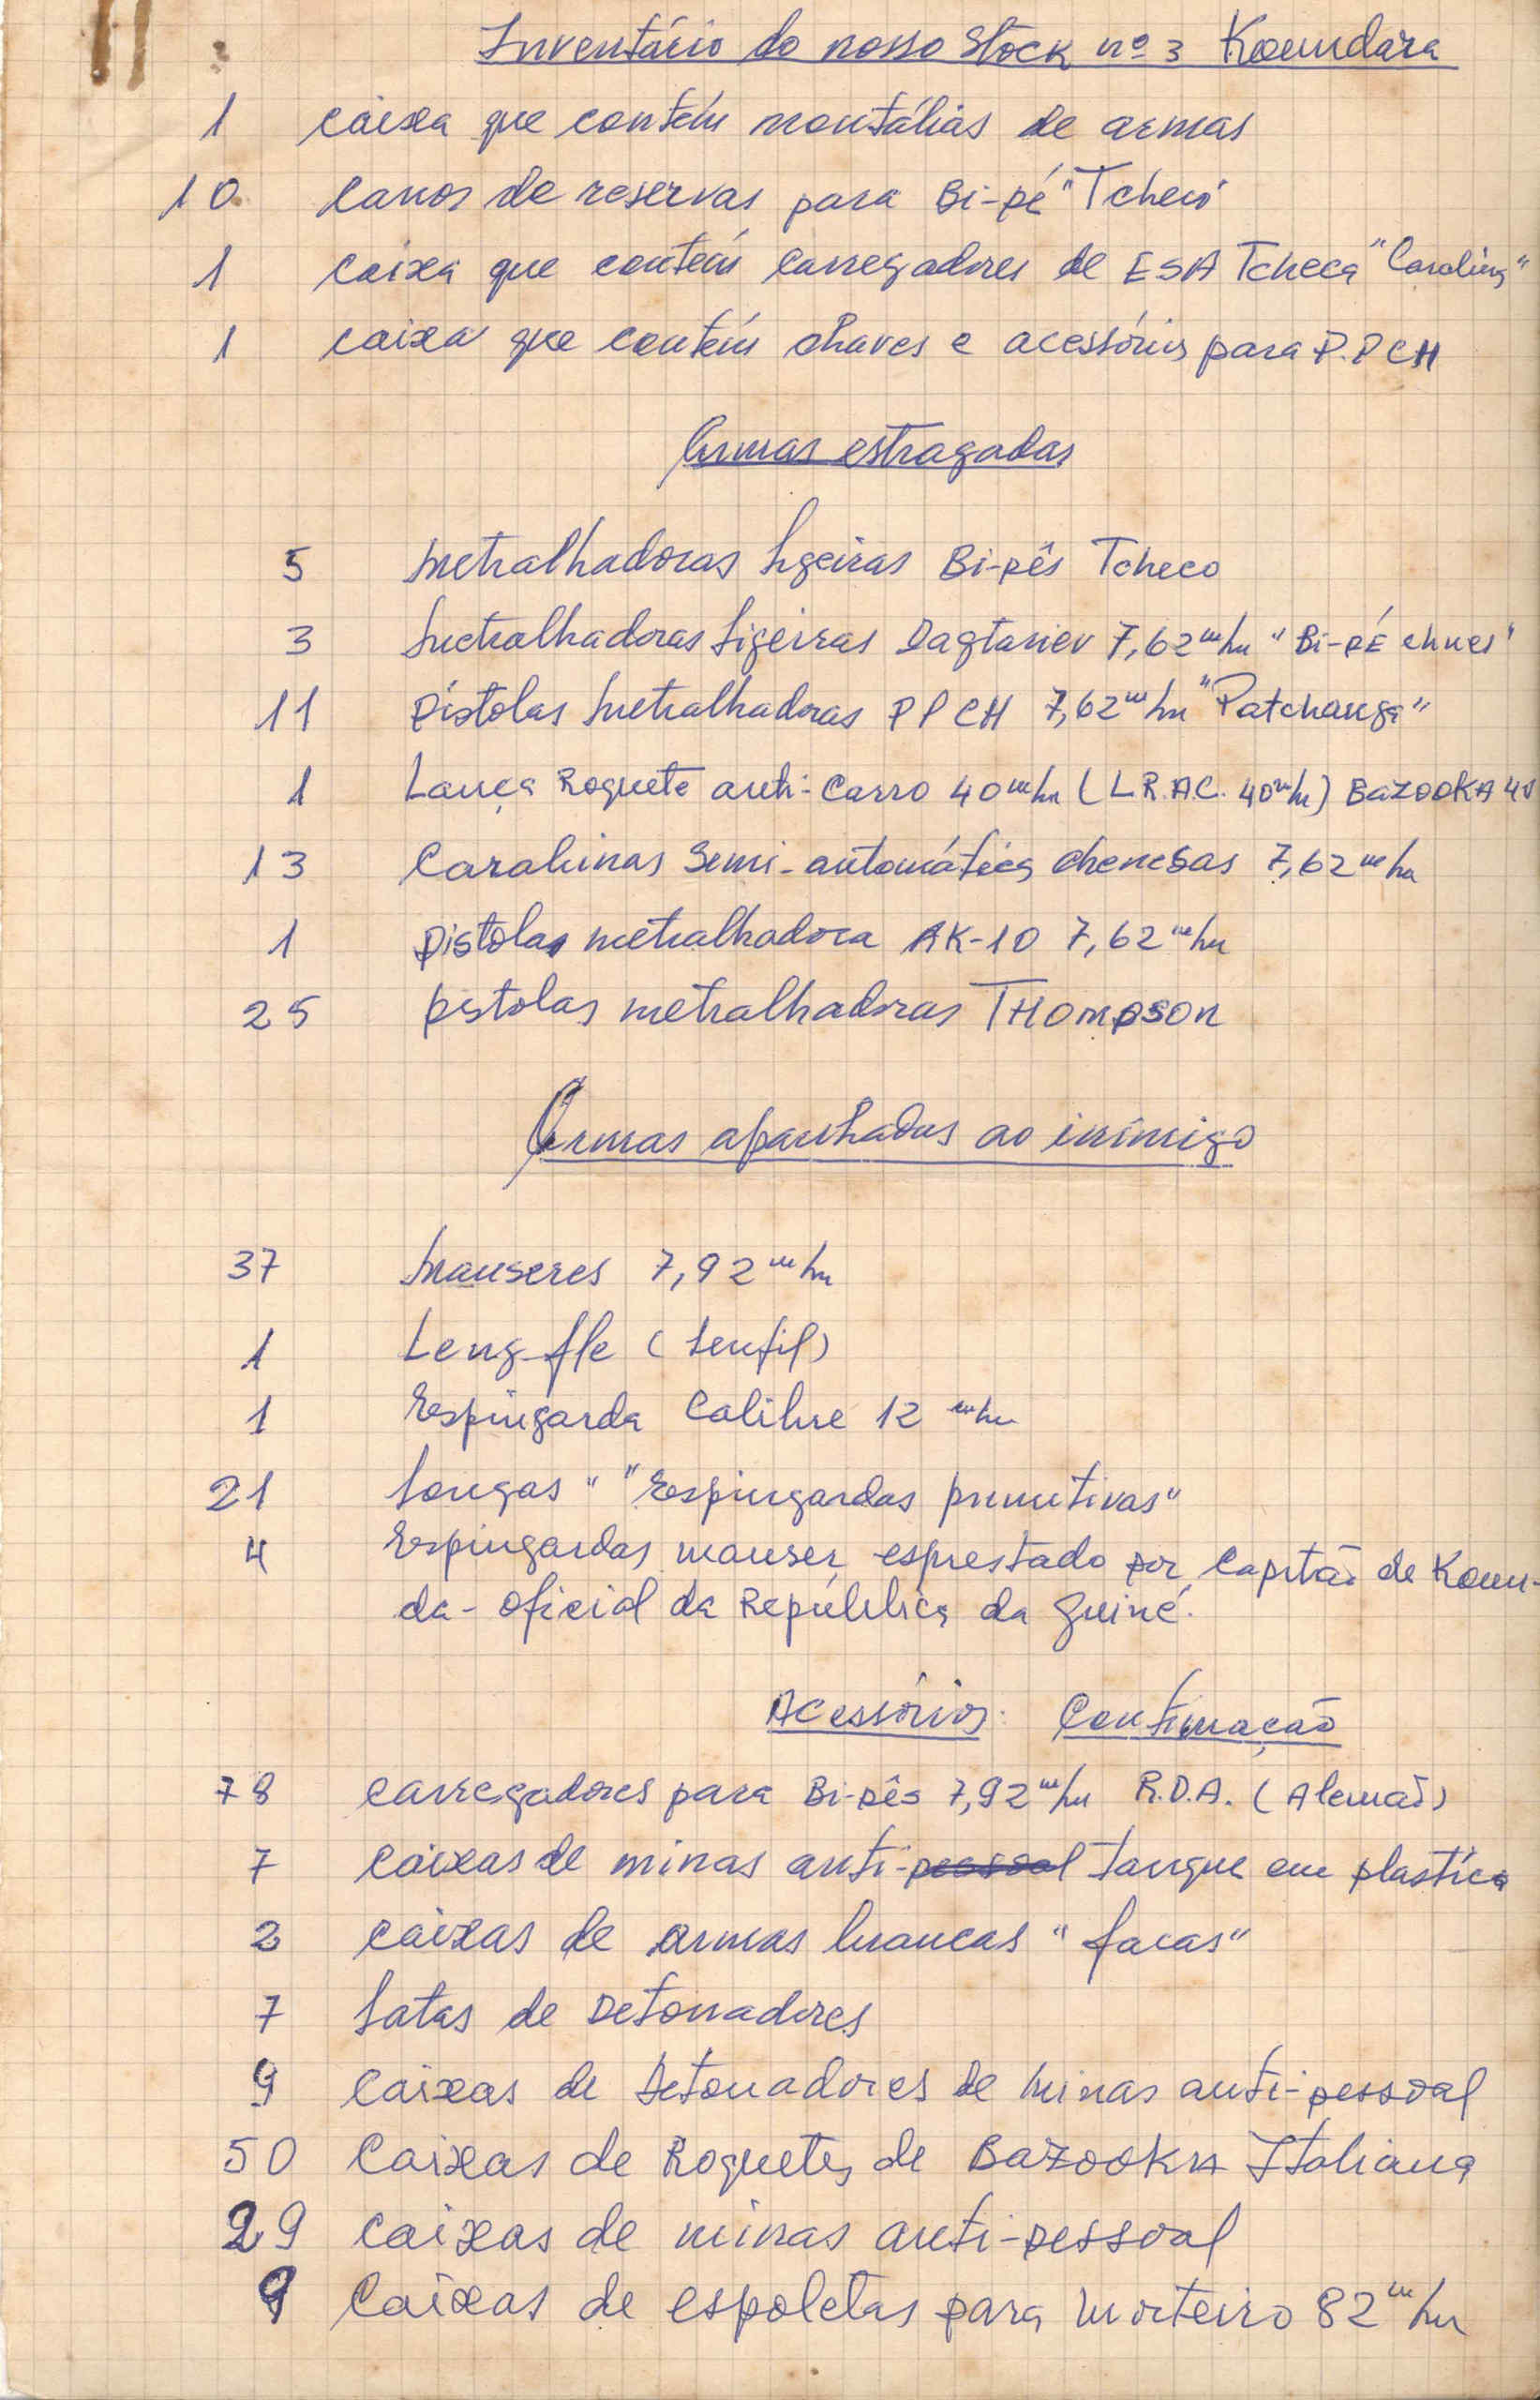 Inventário do nosso Stock nº 3 Koundara
1 caixa que contém montálias de armas
10 canos de reservas para Bi-pé "Tcheco"
1 caixa que contém carregadores de ESA Tcheca "Carolina"
1 caixa que contém chaves e acessórios para P.PCH
Armas estragadas
5 metralhadoras ligeiras Bi-pês Tcheco
3 metralhadoras ligeiras Dagtariev 7,62 m/m "Bi-PÉ chines"
11 Pistolas metralhadoras PPCH 7,62 m/m "Patchanga"
1 Lança Roquete anti-Carro 40 m/m (L.R.A.C. 40 m/m) BazOOKA 40
13 Carabinas Semi-automática chenesas 7,62 m/m
1 pistolas metralhadora AK-10 7,62 m/m
25 pstolas metralhadoras THOmpsON
Armas apanhadas ao inimigo
37 mauseres 7,92 m/m
1 Leng-fle (lenfil)
1 Espingarda Calibre 12 m/m
21 Longas " "Espingardas primitivas"
4 Espingardas mauser esprestado por Capitão de Koun-
da - oficial da República da Guiné.
Acessórios: Continuação
78 carregadores para Bi-pês 7,92 m/m R.D.A. (Alemã)
7 caixas de minas anti-pessoal tanque em plastica
2 caixas de armas brancas "facas"
7 latas de Detonadores
9 caixas de Detonadores de minas anti-pessoal
50 Caixas de Roquetes de BazookA Italiana
29 caixas de minas anti-pessoal
9 Caixas de espoletas para morteiro 82 m/m